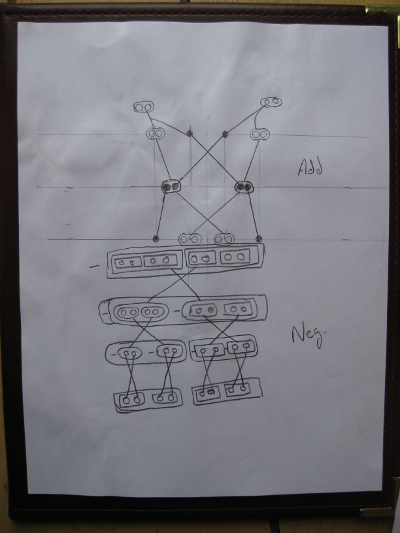 Add
Neg.